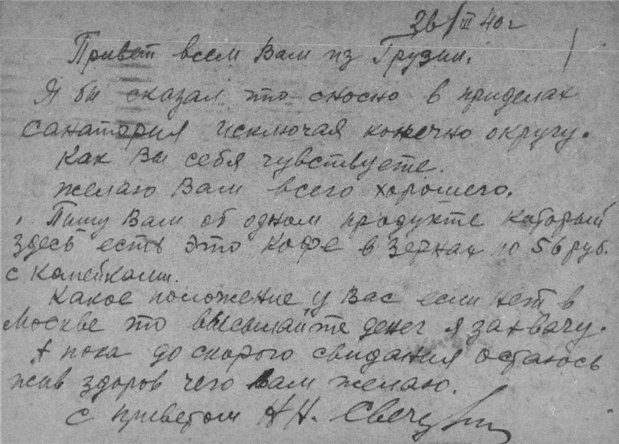 26/III 40 г
Привет всем Вам из Грузии.
Я бы сказал что сносно в приделах
санатория исключая конечно округу.
Как Вы себя чувствуете.
желаю Вам всего хорошего.
Пишу Вам об одном продукте который
здесь есть это кофе в зернах по 56 руб.
с копейками.
Какое положение у Вас если нет в
Москве то высылайте денег я захвачу.
А пока до скорого свидания остаюсь
жив здоров чего Вам желаю.
с приветом Н Н.